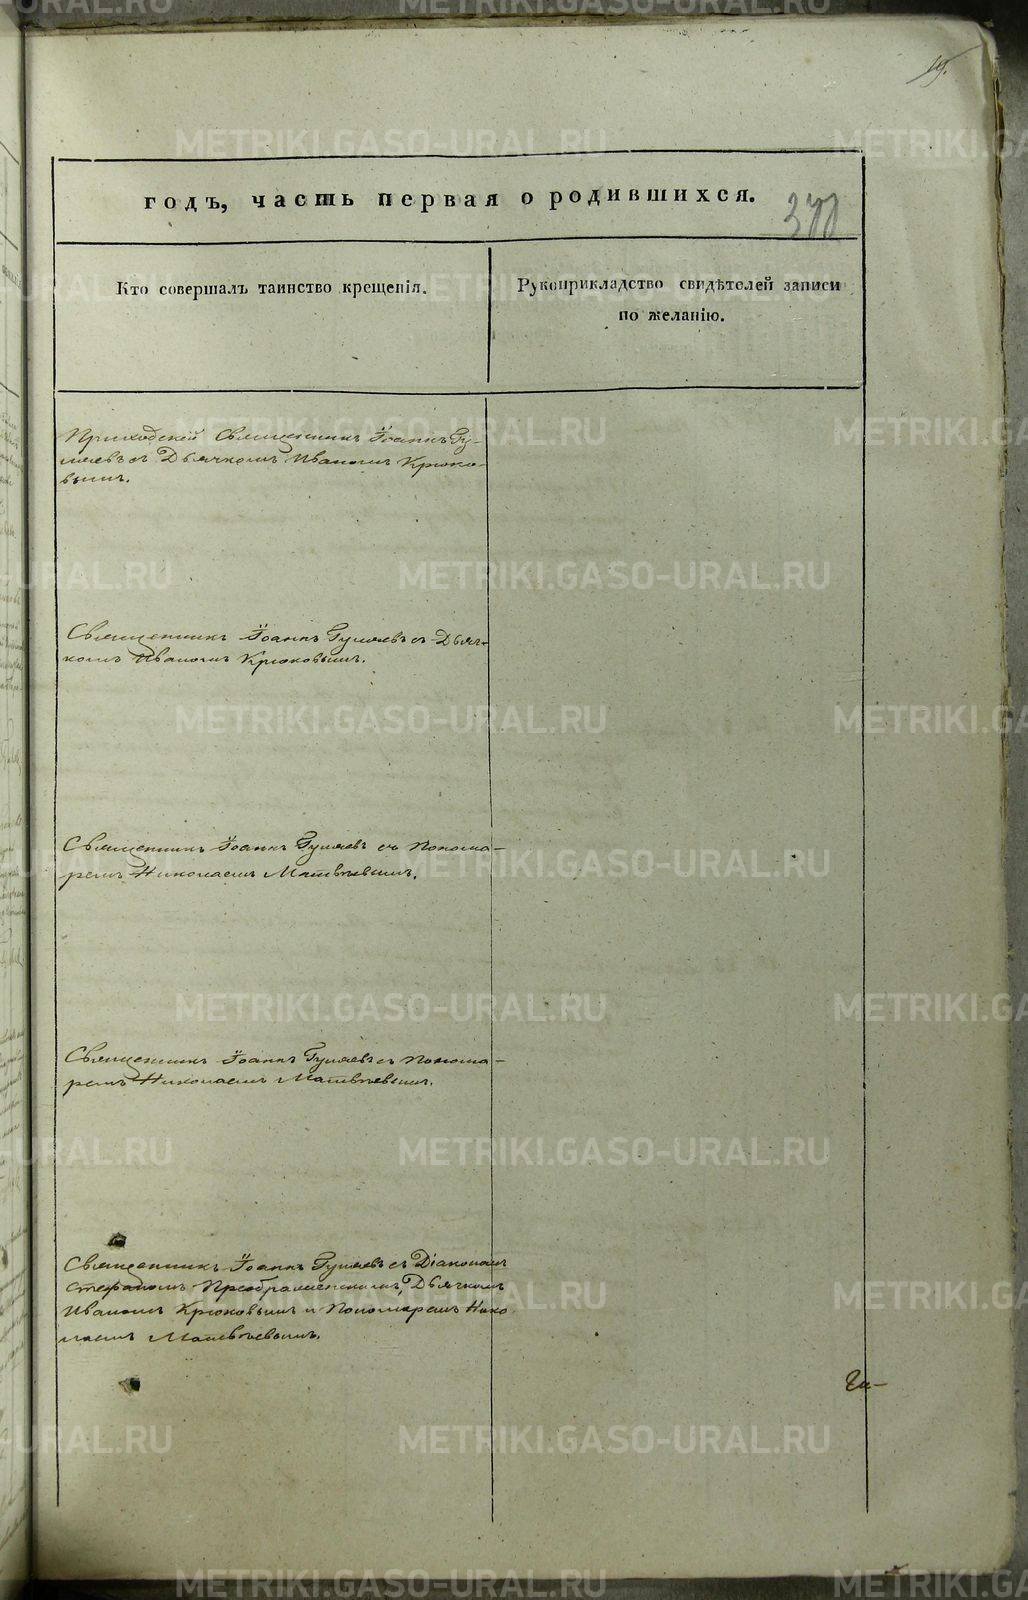 19.
годъ, часть первая о родившихся.
Кто совершалъ таинство крещенія.
Рукоприкладство свидѣтелей записи
по желанію.
Приходскій Священникъ Іоаннъ Гу-
ляевъ съ Дьячкомъ Иваномъ Крюко-
вымъ.
Священникъ Іоаннъ Гуляевъ съ Дьяч-
комъ Иваномъ Крюковымъ.
Священникъ Іоаннъ Гуляевъ съ Понома-
ремъ Николаемъ Матвѣевымъ.
Священникъ Іоаннъ Гуляевъ съ Понома-
ремъ Николаемъ Матвѣевымъ.
Священникъ Іоаннъ Гуляевъ съ Діакономъ
Стефаномъ Преображенскимъ, Дьячкомъ
Иваномъ Крюковымъ и Пономаремъ Нико
лаемъ Матвѣевымъ.
METRIKI.GASO-URAL.RU